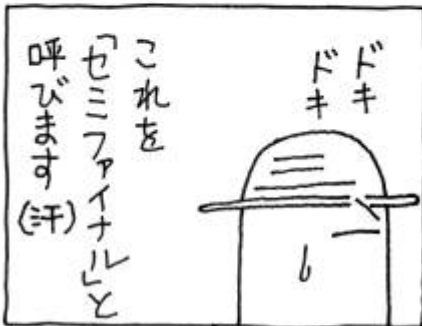 ドキ
ドキ
これを
「セミファイナル」と
呼びます(汗)